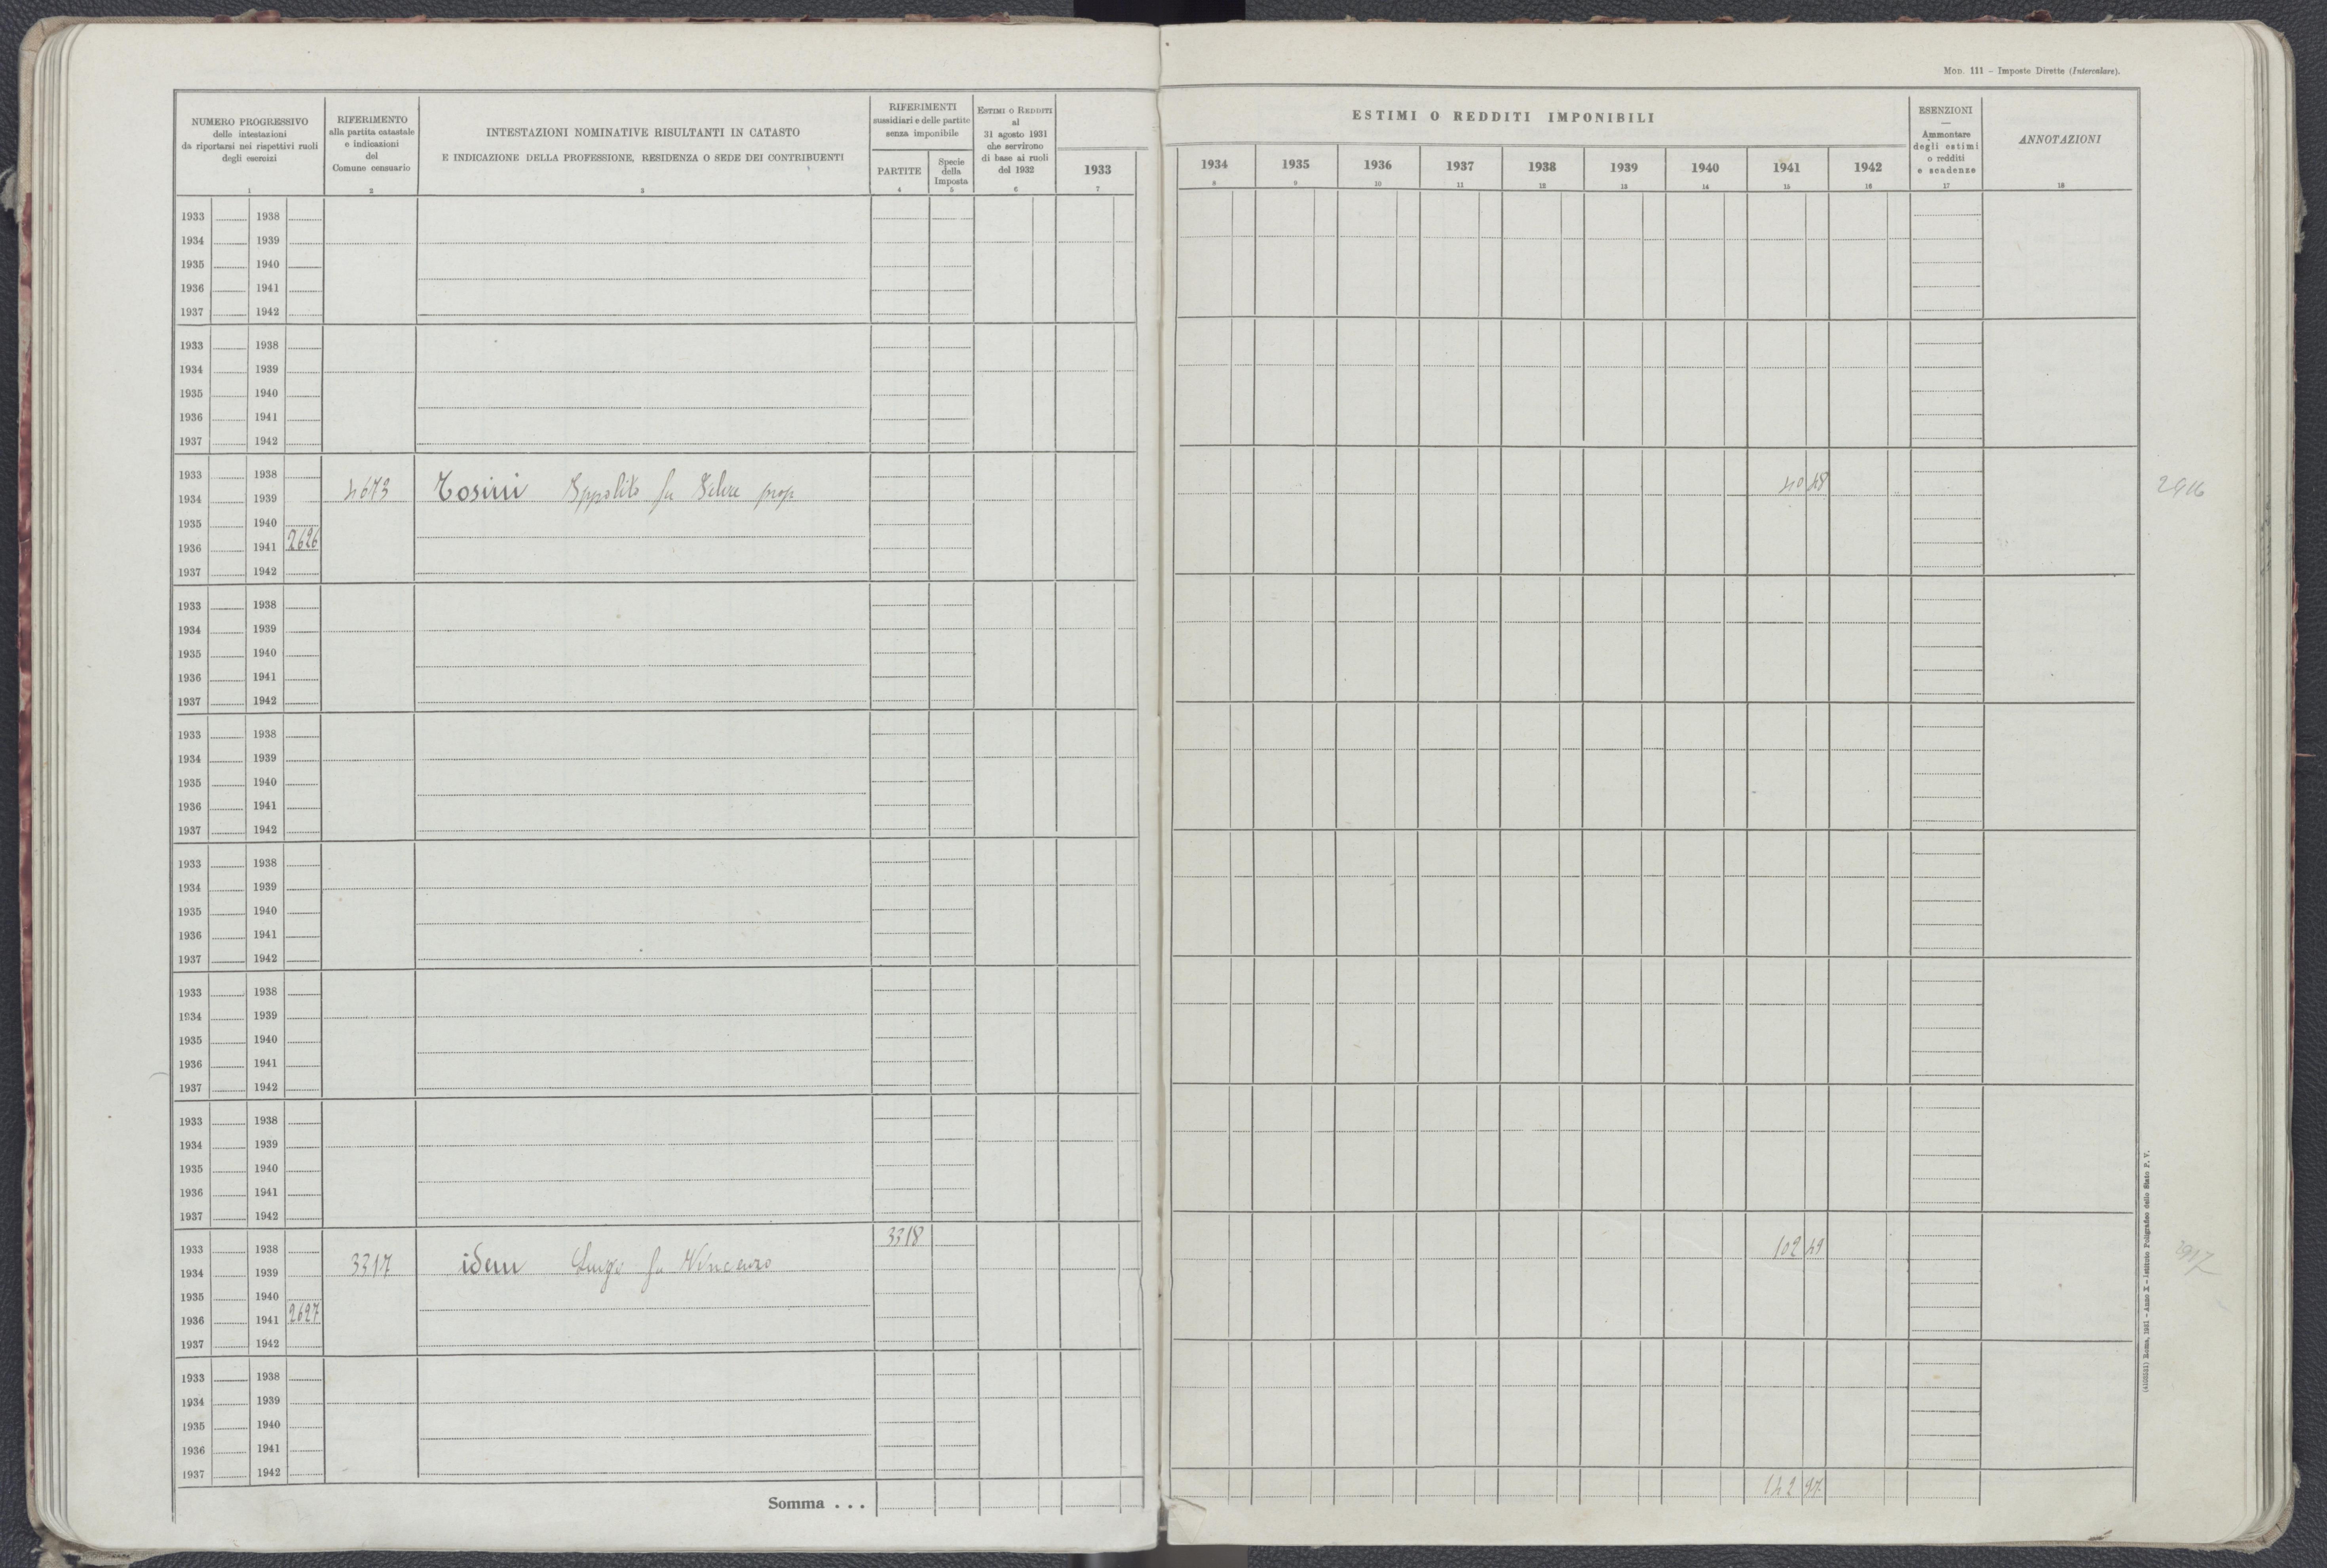 Mod. 111 – Imposte Dirette (Intercalare).
NUMERO PROGRESSIVO
delle intestazioni
da riportarsi nei rispettivi ruoli
degli esercizi
1
RIFERIMENTO
alla partita catastale
e indicazioni
del
Comune censuario
2
INTESTAZIONI NOMINATIVE RISULTANTI IN CATASTO
E INDICAZIONE DELLA PROFESSIONE, RESIDENZA O SEDE DEI CONTRIBUENTI
3
RIFERIMENTI
sussidiari e delle partite
senza imponibile
PARTITE
4
Specie
della
Imposta
5
Estimi o Redditi
al
31 agosto 1931
che servirono
di base ai ruoli
del 1932
6
1933
7
ESTIMI O REDDITI IMPONIBILI
1934 1935 1936 1937 1938 1939 1940 1941 1942
8 9 10 11 12 13 14 15 16
ESENZIONI
—
Ammontare
degli estimi
o redditi
e scadenze
17
ANNOTAZIONI
18
1933 1938
1934 1939
1935 1940
1936 1941
1937 1942
1933 1938
1934 1939
1935 1940
1936 1941
1937 1942
1933 1938
1934 1939 4673 Tosini Ippolito fu prop 40 48 2916
1935 1940
1936 1941 2626
1937 1942
1933 1938
1934 1939
1935 1940
1936 1941
1937 1942
1933 1938
1934 1939
1935 1940
1936 1941
1937 1942
1933 1938
1934 1939
1935 1940
1936 1941
1937 1942
1933 1938
1934 1939
1935 1940
1936 1941
1937 1942
1933 1938
1934 1939
1935 1940
1936 1941
1937 1942
1933 1938 3318 102 49 2917
1934 1939 3317 idem Luigi fu Vincenzo
1935 1940
1936 1941 2627
1937 1942
1933 1938
1934 1939
1935 1940
1936 1941
1937 1942
Somma . . . 142 97
(4108551) Roma, 1931 – Anno X – Istituto Poligrafico dello Stato P. V.